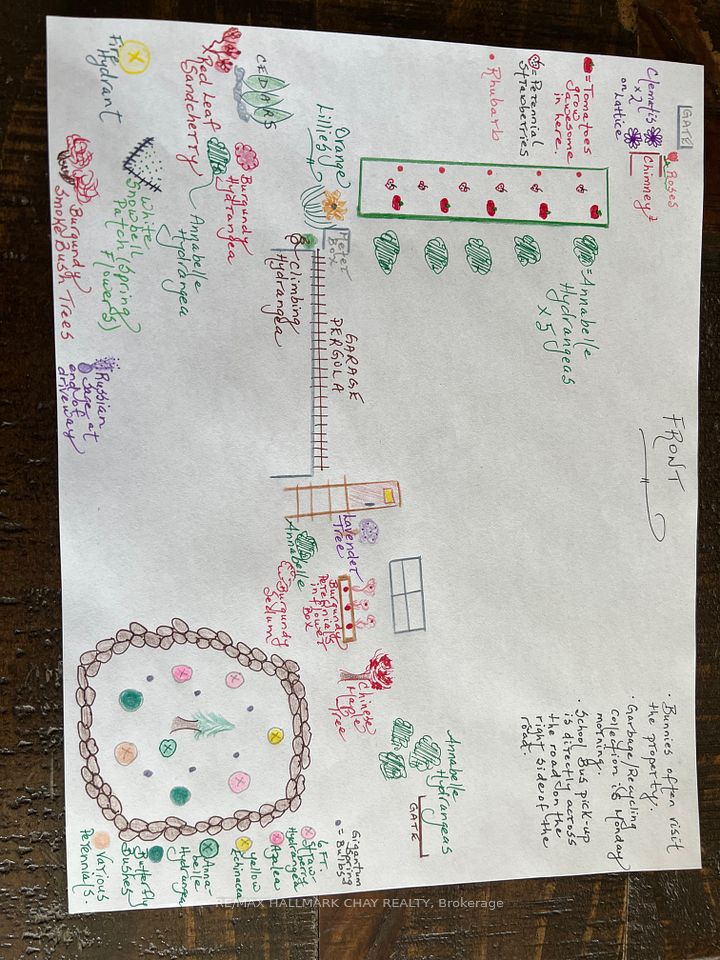 FRONT
GATE
Roses
Clemetis
x 2
on Lattice
Chimney
= Tomatoes
grow
awesome
in here.
= Perennial
Strawberries
• Rhubarb
= Annabelle
Hydrangeas
x 5
Orange
Lillies
Meter
Box
CEDARS
Red Leaf
Sandcherry
Burgundy
Hydrangea
Annabelle
Hydrangea
Climbing
Hydrangea
GARAGE
PERGOLA
Fire
Hydrant
White
Snowbell
Patch (Spring
Flowers)
Burgundy
Smoke Bush Trees
Russian
Sage at
end of
driveway
Lavender
Tree
Annabelle
Burgundy
Sedum
Burgundy
Perennials
in flower
Box
Chinese
Maple
Tree
Annabelle
Hydrangeas
GATE
• Bunnies often visit
the property.
• Garbage/Recycling
collection is Monday
morning.
• School Bus pick-up
is directly across
the road on the
right side of the
road.
Gigantum
Spring
= Bulbs
6 FT.
Straw
berry
Hydrangea
Azalea
Yellow
Echinacea
Anna
belle
Hydrangea
Butterfly
Bushes
Various
Perennials.
RE/MAX HALLMARK CHAY REALTY, Brokerage